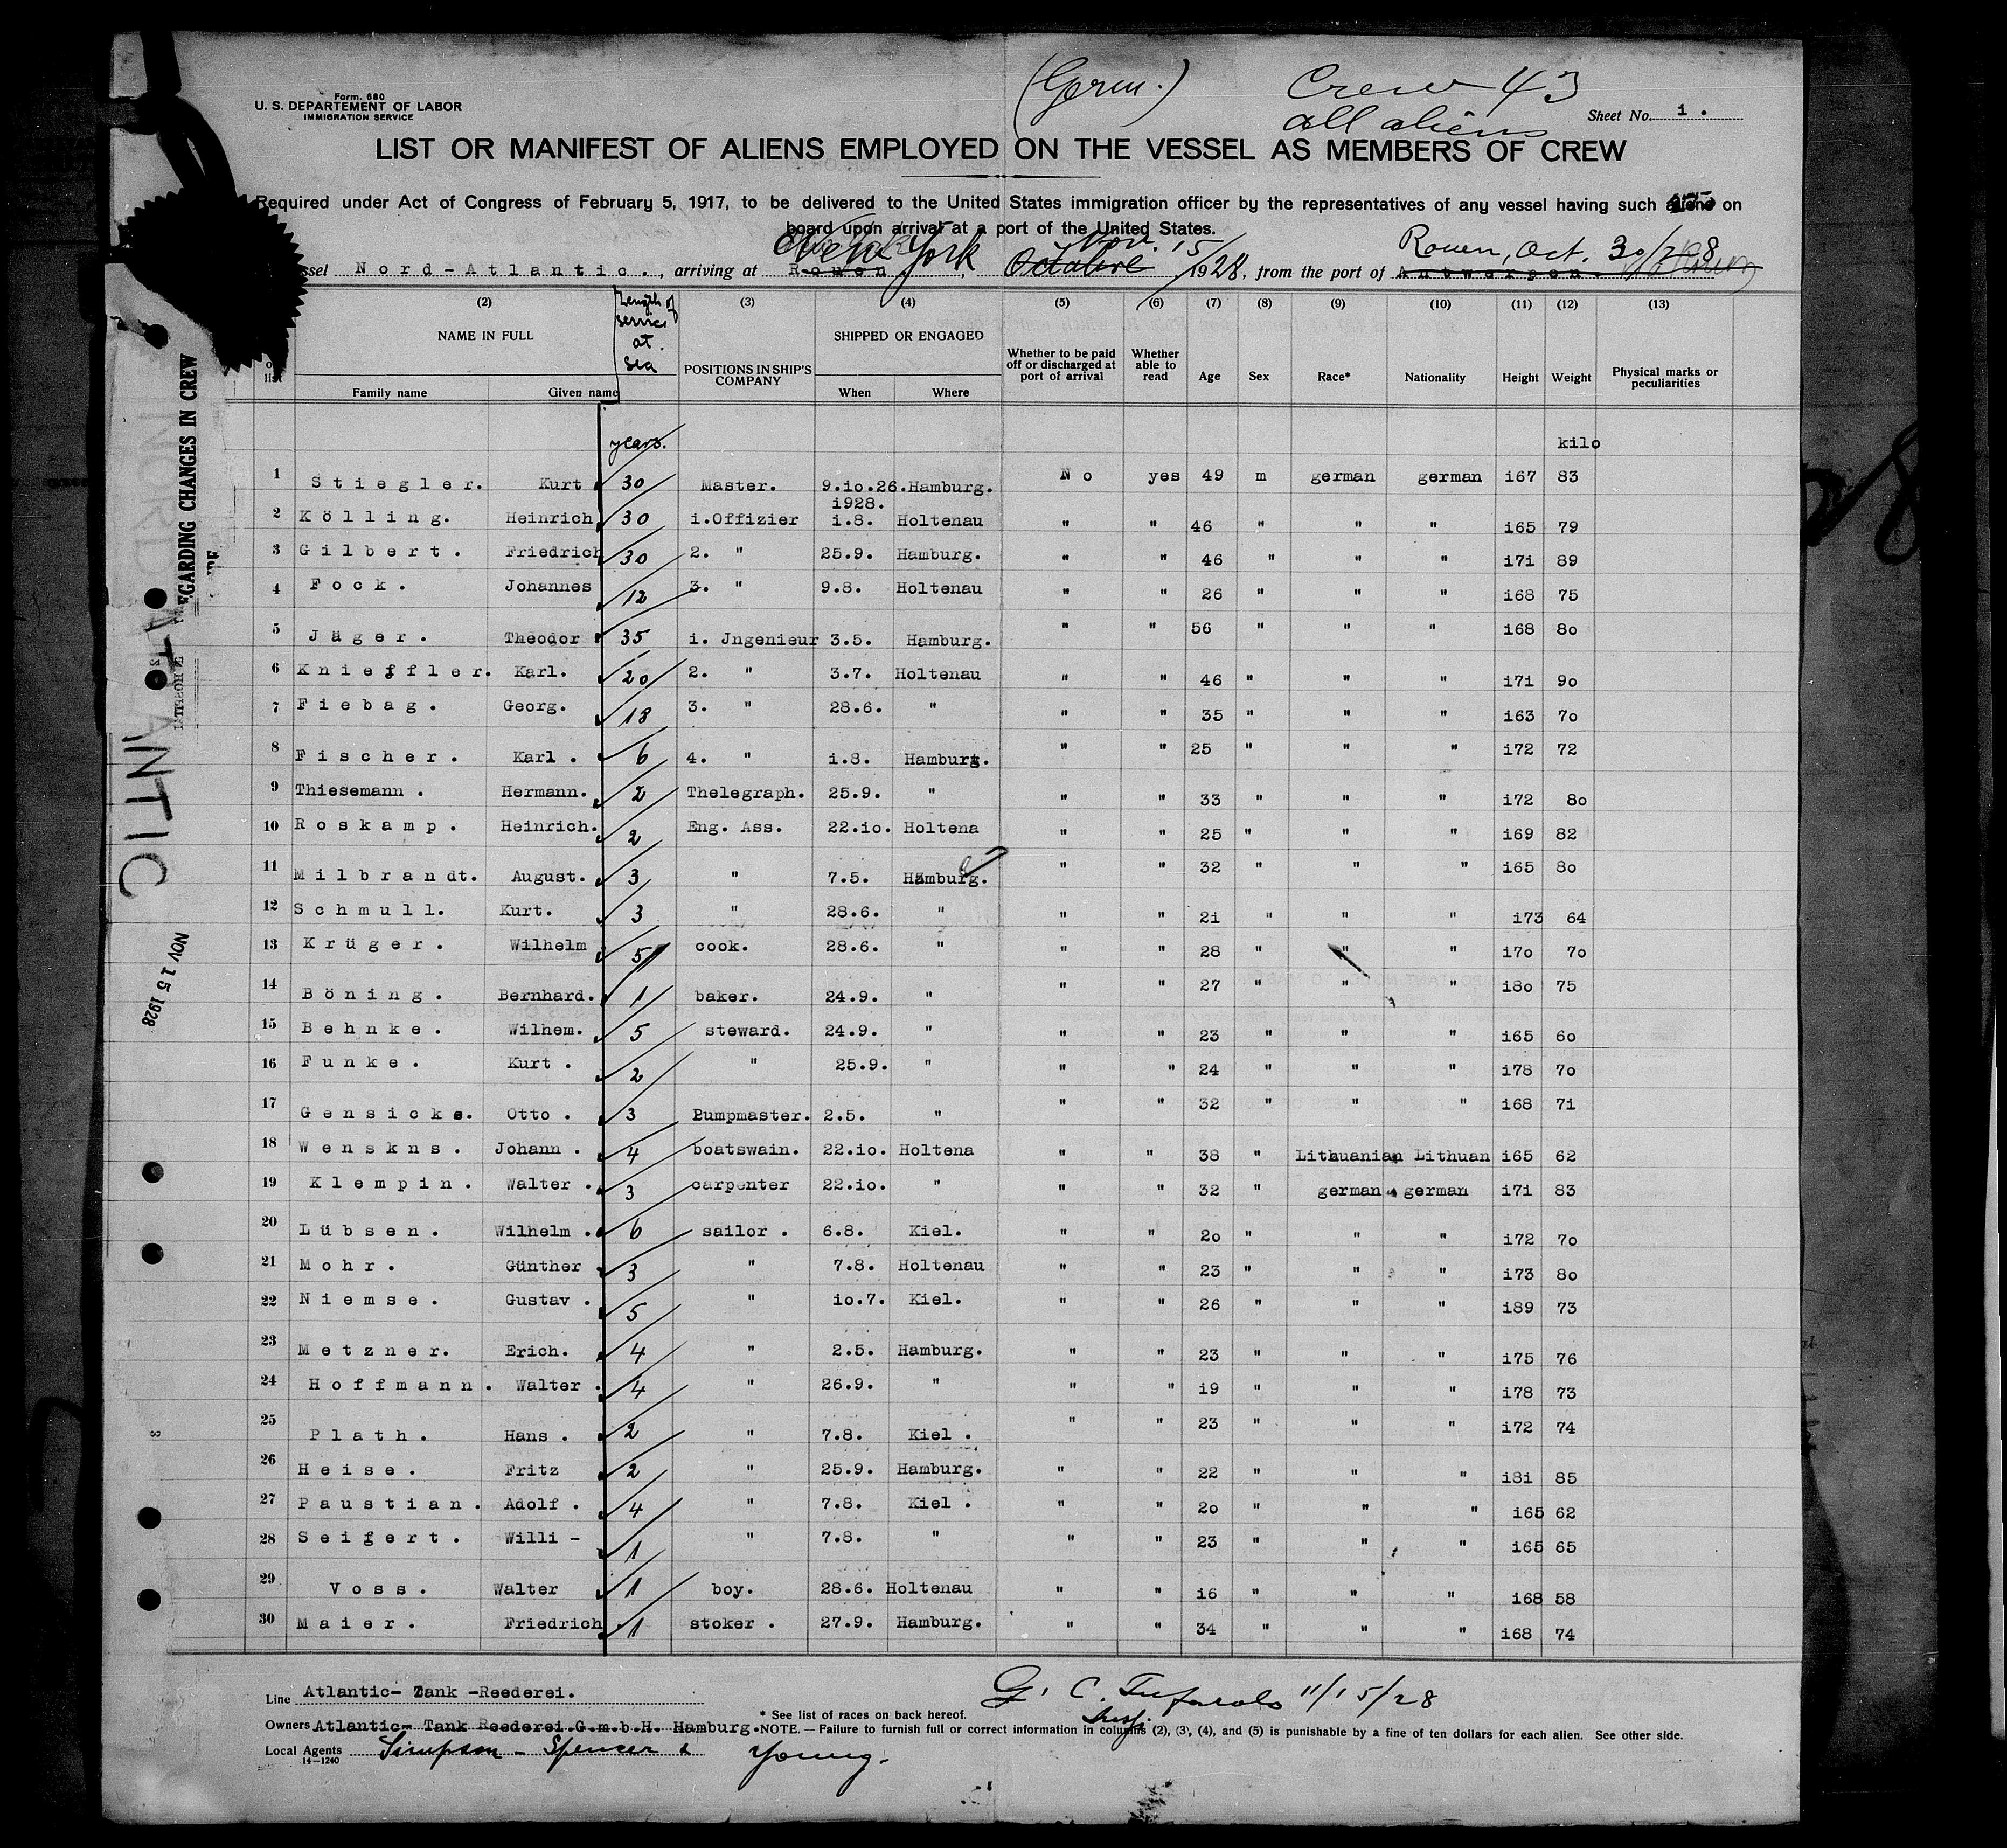 (Germ.)
Crew 43
all aliens
Form. 680
U. S. DEPARTEMENT OF LABOR
IMMIGRATION SERVICE
Sheet No. i.
LIST OR MANIFEST OF ALIENS EMPLOYED ON THE VESSEL AS MEMBERS OF CREW
Required under Act of Congress of February 5, 1917, to be delivered to the United States immigration officer by the representatives of any vessel having such aliens on
board upon arrival at a port of the United States.
ssel Nord-Atlantic., arriving at Rouen New York, Octobre Nov. 15/1928, from the port of Antwerpen. Rouen, Oct. 30/28
(2) Length of service at sea (3) (4) (5) (6) (7) (8) (9) (10) (11) (12) (13)
list NAME IN FULL Family name Given name POSITIONS IN SHIP'S COMPANY SHIPPED OR ENGAGED When Where Whether to be paid off or discharged at port of arrival Whether able to read Age Sex Race* Nationality Height Weight Physical marks or peculiarities
years. kilo
1 Stiegler. Kurt 30 Master. 9.io.26. Hamburg. No yes 49 m german german i67 83
1928.
2 Kölling. Heinrich 30 i.Offizier i.8. Holtenau " " 46 " " " i65 79
3 Gilbert. Friedrich 30 2. " 25.9. Hamburg. " " 46 " " " i7i 89
4 Fock. Johannes 12 3. " 9.8. Holtenau " " 26 " " " i68 75
5 Jäger. Theodor 35 i. Jngenieur 3.5. Hamburg. " " 56 " " " i68 8o
6 Knieffler. Karl. 20 2. " 3.7. Holtenau " " 46 " " " i7i 9o
7 Fiebag. Georg. 18 3. " 28.6. " " " 35 " " " i63 7o
8 Fischer. Karl . 6 4. " i.8. Hamburg. " " 25 " " " i72 72
9 Thiesemann . Hermann. 2 Thelegraph. 25.9. " " " 33 " " " i72 8o
10 Roskamp. Heinrich. 2 Eng. Ass. 22.io. Holtena " " 25 " " " i69 82
11 Milbrandt. August. 3 " 7.5. Hamburg. " " 32 " " " i65 8o
12 Schmull. Kurt. 3 " 28.6. " " " 2i " " " i73 64
13 Krüger. Wilhelm 5 cook. 28.6. " " " 28 " " " i7o 7o
14 Böning. Bernhard. 1 baker. 24.9. " " " 27 " " " i8o 75
15 Behnke. Wilhem. 5 steward. 24.9. " " " 23 " " " i65 6o
16 Funke. Kurt . 2 " 25.9. " " " 24 " " " i78 7o
17 Gensicke. Otto . 3 Pumpmaster. 2.5. " " " 32 " " " i68 7i
18 Wenskns. Johann . 4 boatswain. 22.io. Holtena " " 38 " Lithuanian Lithuan i65 62
19 Klempin. Walter . 3 carpenter 22.io. " " " 32 " german german i7i 83
20 Lübsen. Wilhelm . 6 sailor . 6.8. Kiel. " " 2o " " " i72 7o
21 Mohr. Günther 3 " 7.8. Holtenau " " 23 " " " i73 8o
22 Niemse. Gustav . 5 " io.7. Kiel. " " 26 " " " i89 73
23 Metzner. Erich. 4 " 2.5. Hamburg. " " 23 " " " i75 76
24 Hoffmann. Walter . 4 " 26.9. " " " i9 " " " i78 73
25 Plath. Hans . 2 " 7.8. Kiel . " " 23 " " " i72 74
26 Heise. Fritz 2 " 25.9. Hamburg. " " 22 " " " i8i 85
27 Paustian. Adolf . 4 " 7.8. Kiel . " " 2o " " " i65 62
28 Seifert. Willi - 1 " 7.8. " " " 23 " " " i65 65
29 Voss. Walter 1 boy. 28.6. Holtenau " " i6 " " " i68 58
30 Maier. Friedrich. 1 stoker . 27.9. Hamburg. " " 34 " " " i68 74
Line Atlantic- Tank -Reederei.
G. C. 11/15/28
* See list of races on back hereof.
Owners Atlantic- Tank Reederei G.m.b.H. Hamburg. NOTE. — Failure to furnish full or correct information in columns (2), (3), (4), and (5) is punishable by a fine of ten dollars for each alien. See other side.
Local Agents Simpson - Spencer & Young.
14—1240
EGARDING CHANGES IN CREW
ANTIC
NOV 15 1928